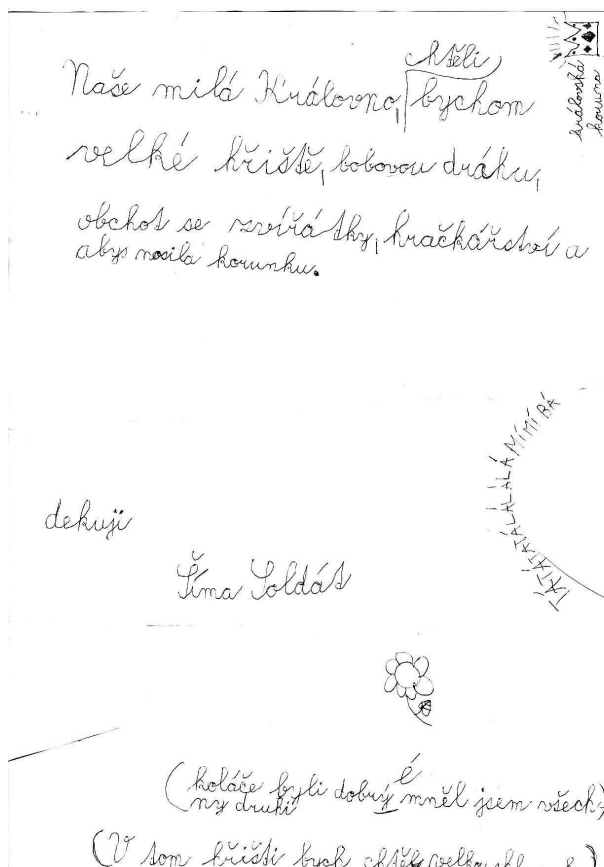 chtěli
Naše milá Královno, bychom
velké hřiště, bobovou dráhu,
obchot se zvířátky, hračkářství a
abys nosila korunku.
královská
koruna
TÁTÁTÁTÁLÁLÁLÁLÁMÍMÍBÁ
dekuji
Šíma Soldát
é
(koláče byli dobrý mněl jsem všech)
ny druhi
(V tom hřišti bych chtěl velkou